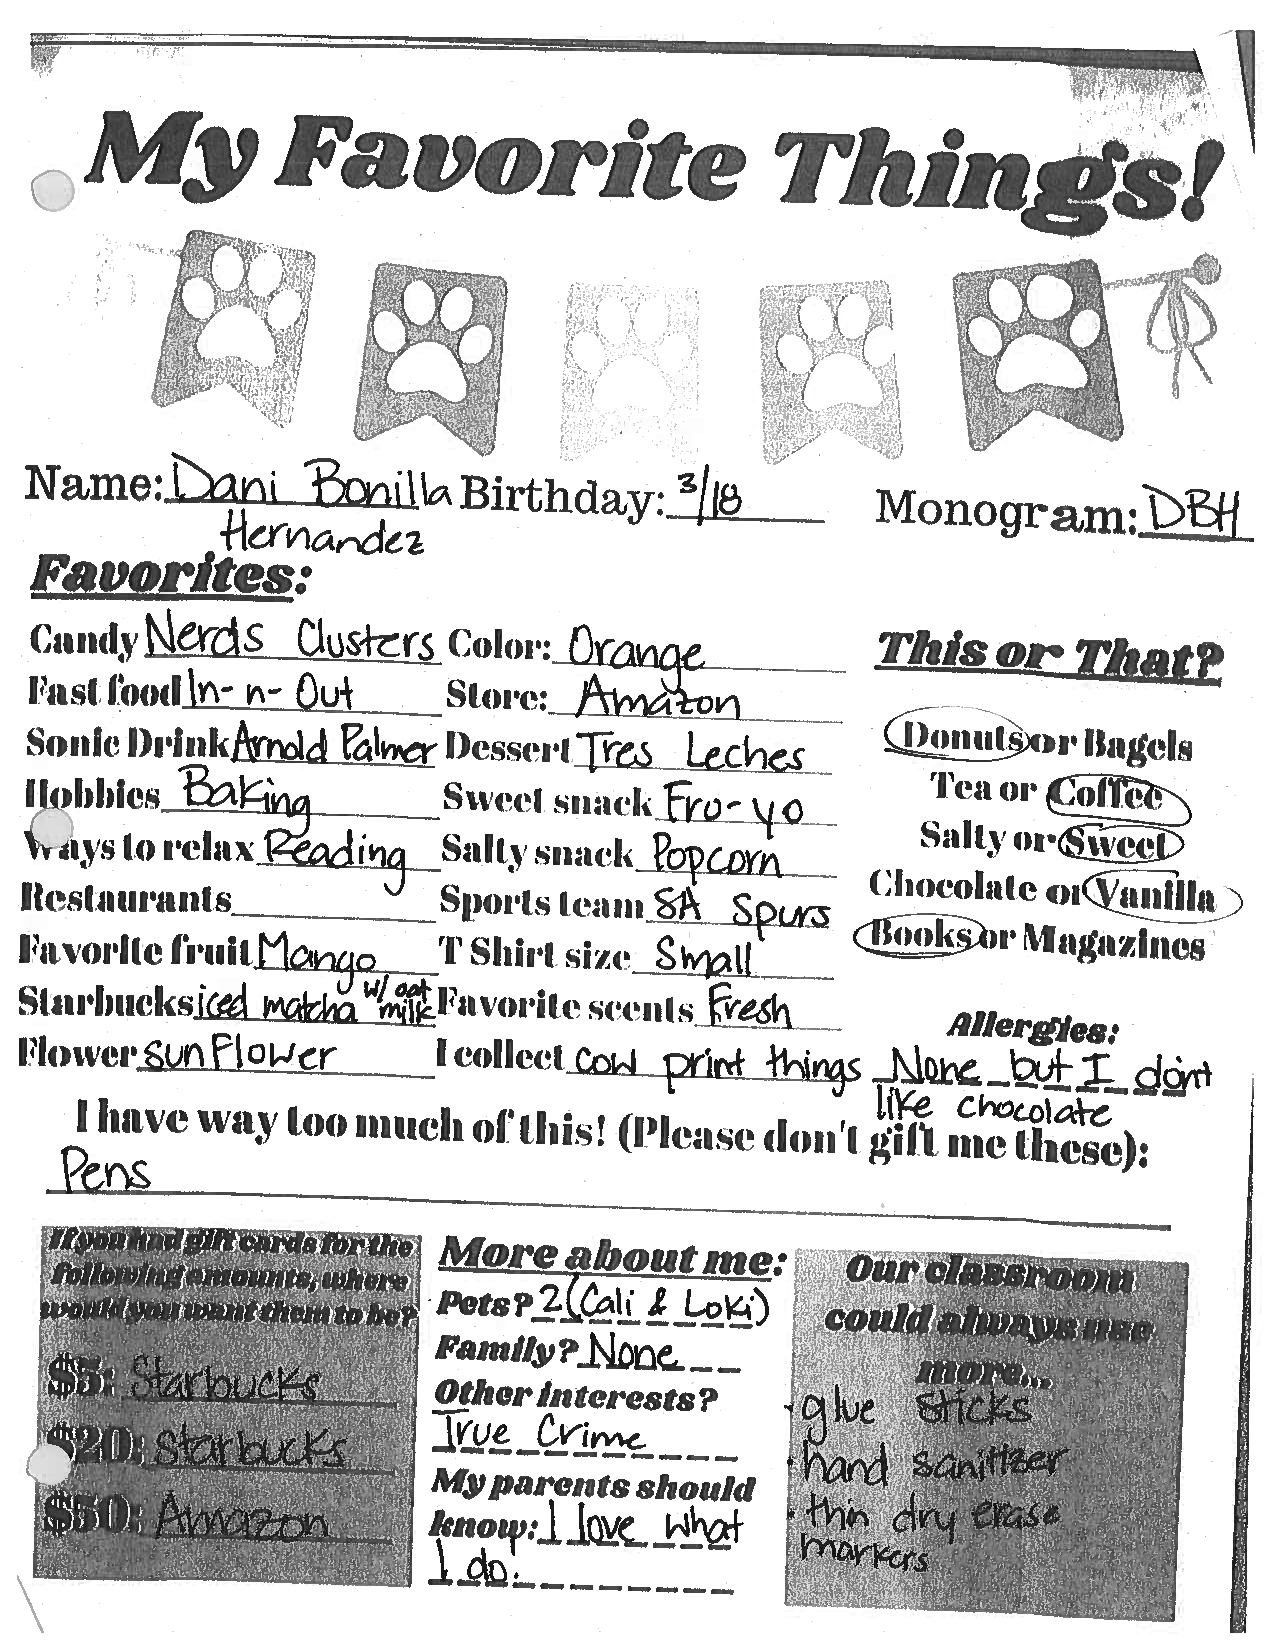 My Favorite Things!
Name: Dani Bonilla Birthday: 3/18 Monogram: DBH
Hernandez
Favorites:
Candy Nerds Clusters Color: Orange
This or That?
Fast food In-n-Out Store: Amazon
Donuts or Bagels
Sonic Drink Arnold Palmer Dessert Tres Leches
Tea or Coffee
Hobbies Baking Sweet snack Fro-yo
Salty or Sweet
Ways to relax Reading Salty snack Popcorn
Chocolate or Vanilla
Restaurants Sports team SA Spurs
Books or Magazines
Favorite fruit Mango T Shirt size Small
Starbucks iced matcha w/ oat milk Favorite scents Fresh
Allergies:
Flower sunflower I collect cow print things None but I don't
like chocolate
I have way too much of this! (Please don't gift me these):
Pens
If you had gift cards for the
following amounts, where
would you want them to be?
$5: Starbucks
$20: Starbucks
$50: Amazon
More about me:
Pets? 2 (Cali & Loki)
Family? None
Other interests?
True Crime
My parents should
know: I love what
I do!
Our classroom
could always use
more...
· glue sticks
· hand sanitizer
· thin dry erase
markers